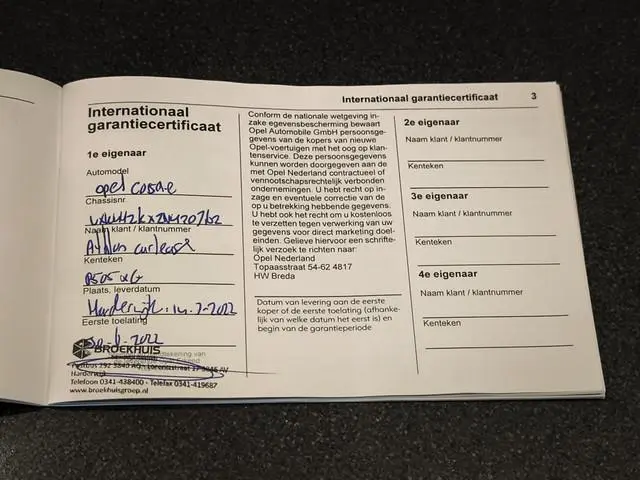 Internationaal garantiecertificaat 3
Internationaal
garantiecertificaat
1e eigenaar
Automodel
opel corsa-e
Chassisnr
Naam klant / klantnummer
Kenteken
Plaats, leverdatum
Harderwijk. 14-7-2022
Eerste toelating
2022
BROEKHUIS
Postbus 292 3840 AG
Harderwijk
Telefoon 0341-438400 - Telefax 0341-419687
www.broekhuisgroep.nl
Conform de nationale wetgeving in-
zake egevensbescherming bewaart
Opel Automobile GmbH persoonsge-
gevens van de kopers van nieuwe
Opel-voertuigen met het oog op klan-
tenservice. Deze persoonsgegevens
kunnen worden doorgegeven aan de
met Opel Nederland contractueel of
vennootschapsrechtelijk verbonden
ondernemingen. U hebt recht op in-
zage en eventuele correctie van de
op u betrekking hebbende gegevens.
U hebt ook het recht om u kosteloos
te verzetten tegen verwerking van uw
gegevens voor direct marketing doel-
einden. Gelieve hiervoor een schrifte-
lijk verzoek te richten naar:
Opel Nederland
Topaasstraat 54-62 4817
HW Breda
Datum van levering aan de eerste
koper of de eerste toelating (afhanke-
lijk van welke datum het eerst is) en
begin van de garantieperiode
2e eigenaar
Naam klant / klantnummer
Kenteken
3e eigenaar
Naam klant / klantnummer
Kenteken
4e eigenaar
Naam klant / klantnummer
Kenteken